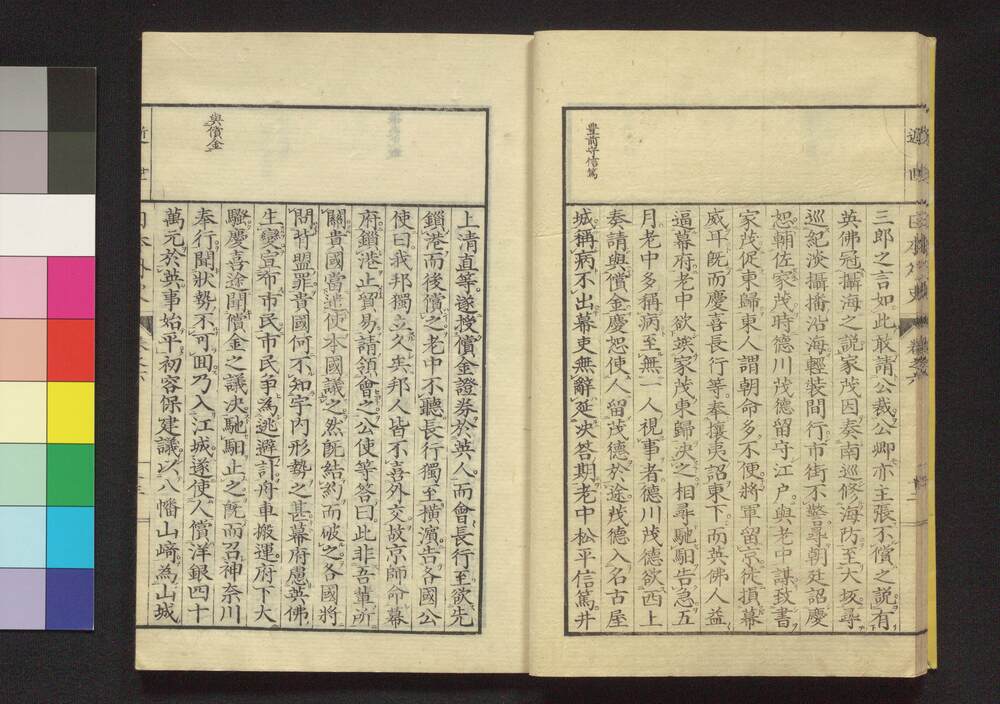 豊前守信篤
三郎之言如此敢請公裁公卿亦主張不償之說有
英佛冦攝海之說家茂因奏南巡修海防至大坂尋
巡紀淡攝播沿海輕裝問行市街不警尋朝廷詔慶
恕輔佐家茂時德川茂德留守江戶與老中謀致書
家茂促東歸東人謂朝命多不便將軍留京徒損幕
威耳既而慶喜長行等奉攘夷詔東下而英佛人益
逼幕府老中欲竢家茂東歸決之相尋馳馹告急五
月老中多稱病至無一人視事者德川茂德欲西上
奏請與償金慶恕使人留茂德於途茂德入名古屋
城稱病不出幕吏無辭延決答期老中松平信篤井
與償金
上清直等遂授償金證券於英人而會長行至欲先
鎖港而後償之老中不聽長行獨至橫濱告各國公
使曰我邦獨立久矣邦人皆不喜外交故京師命幕
府鎖港止貿易請領會之公使等答曰此非吾輩所
關貴國當遣使本國議之然既結約而破之各國將
問背盟罪貴國何不知宇内形勢之甚幕府慮英佛
生變宣布市民市民爭為逃避計舟車搬運府下大
騷慶喜途聞償金之議決馳馹止之既而召神奈川
奉行聞狀勢不可回乃入江城遂使人償洋銀四十
萬元於英事始平初容保建議以八幡山崎為山城